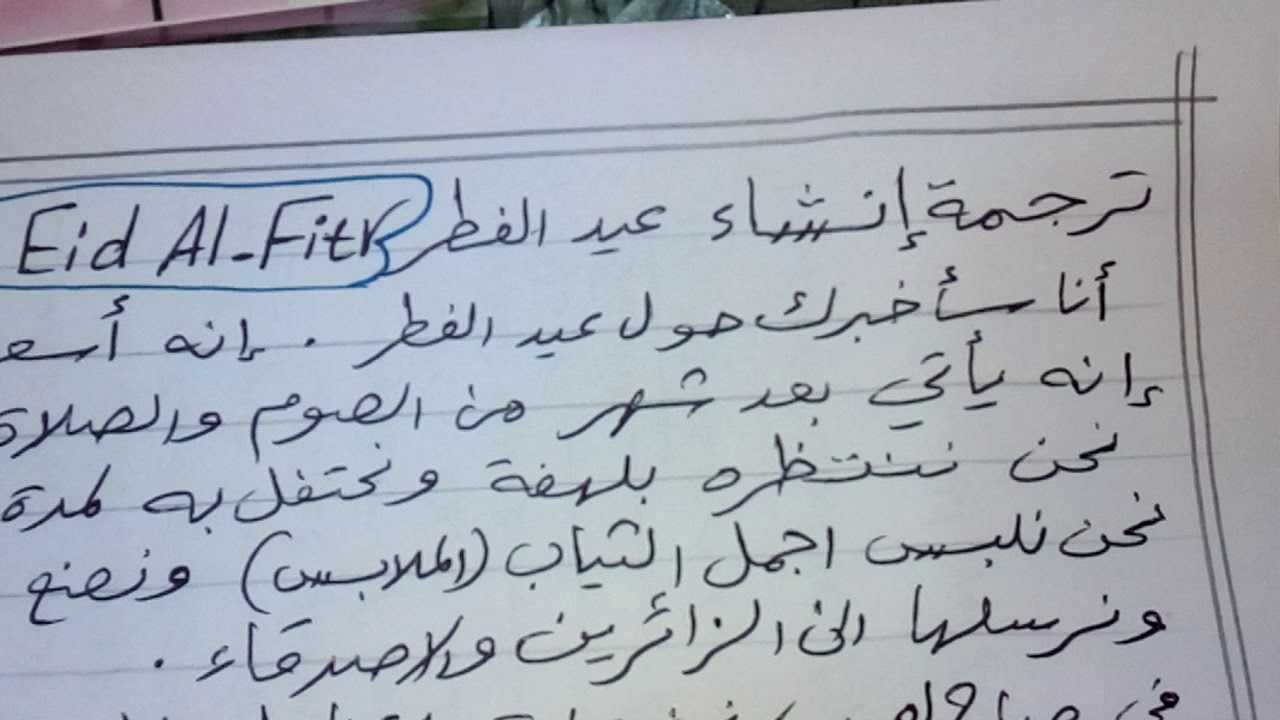 ترجمة إنشاء عيد الفطر Eid Al-Fitr
أنا سأخبرك حول عيد الفطر . إنه أسع
إنه يأتي بعد شهر من الصوم والصلاة
نحن ننتظره بلهفة ونحتفل به لمدة
نحن نلبس اجمل الثياب (الملابس) ونصنع
ونرسلها الى الزائرين والاصدقاء .
في